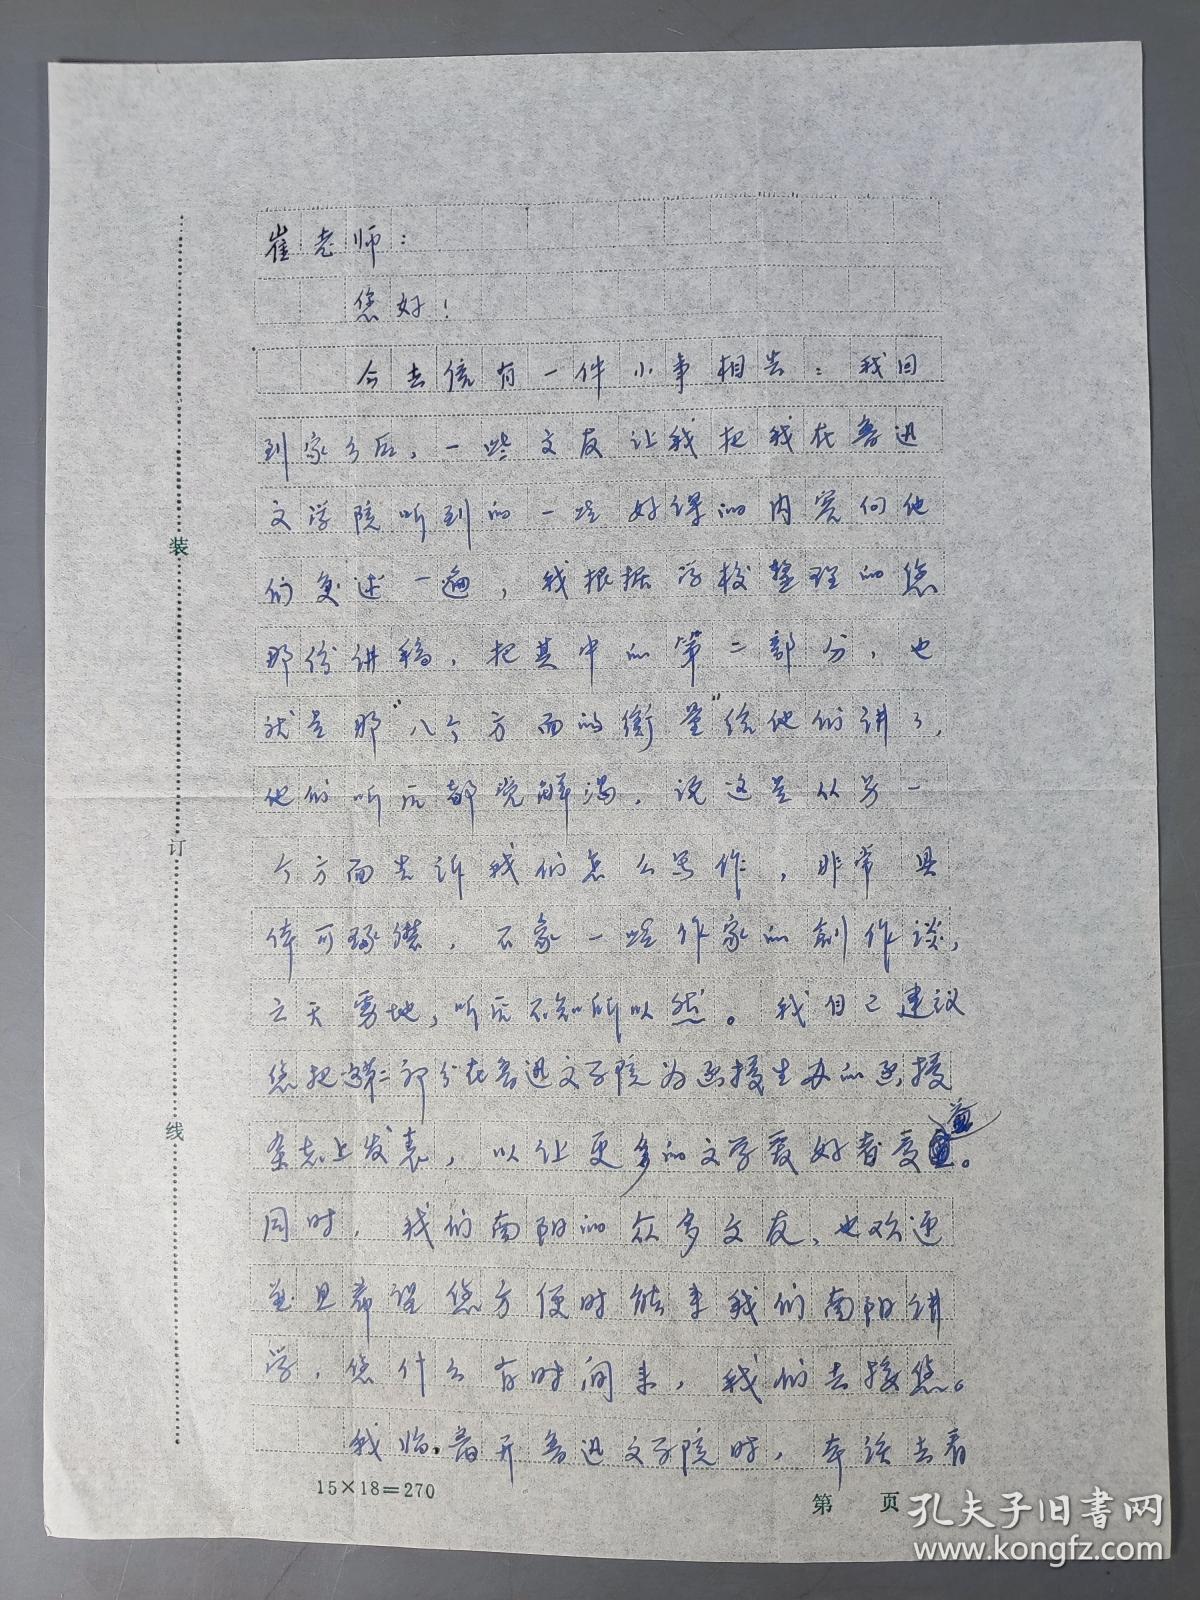 崔老师：
您好！
今去信有一件小事相告：我回
到家乡后，一些文友让我把我在鲁迅
文学院听到的一些好课的内容向他
们复述一遍，我根据学校整理的您
那份讲稿，把其中的第二部分，也
就是那“八个方面的衡量”给他们讲了，
他们听后都觉解渴，说这是从另一
个方面告诉我们怎么写作，非常具
体可琢磨，不象一些作家的创作谈，
云天雾地，听后不知所以然。我自己建议
您把第二部分在鲁迅文学院为函授生办的函授
杂志上发表，以让更多的文学爱好者受益。
同时，我们南阳的众多文友，也欢迎
并且希望您方便时能来我们南阳讲
学，您什么有时间来，我们去接您。
我临离开鲁迅文学院时，本该去看
装
订
线
15×18=270
第 页
孔夫子旧书网
www.kongfz.com